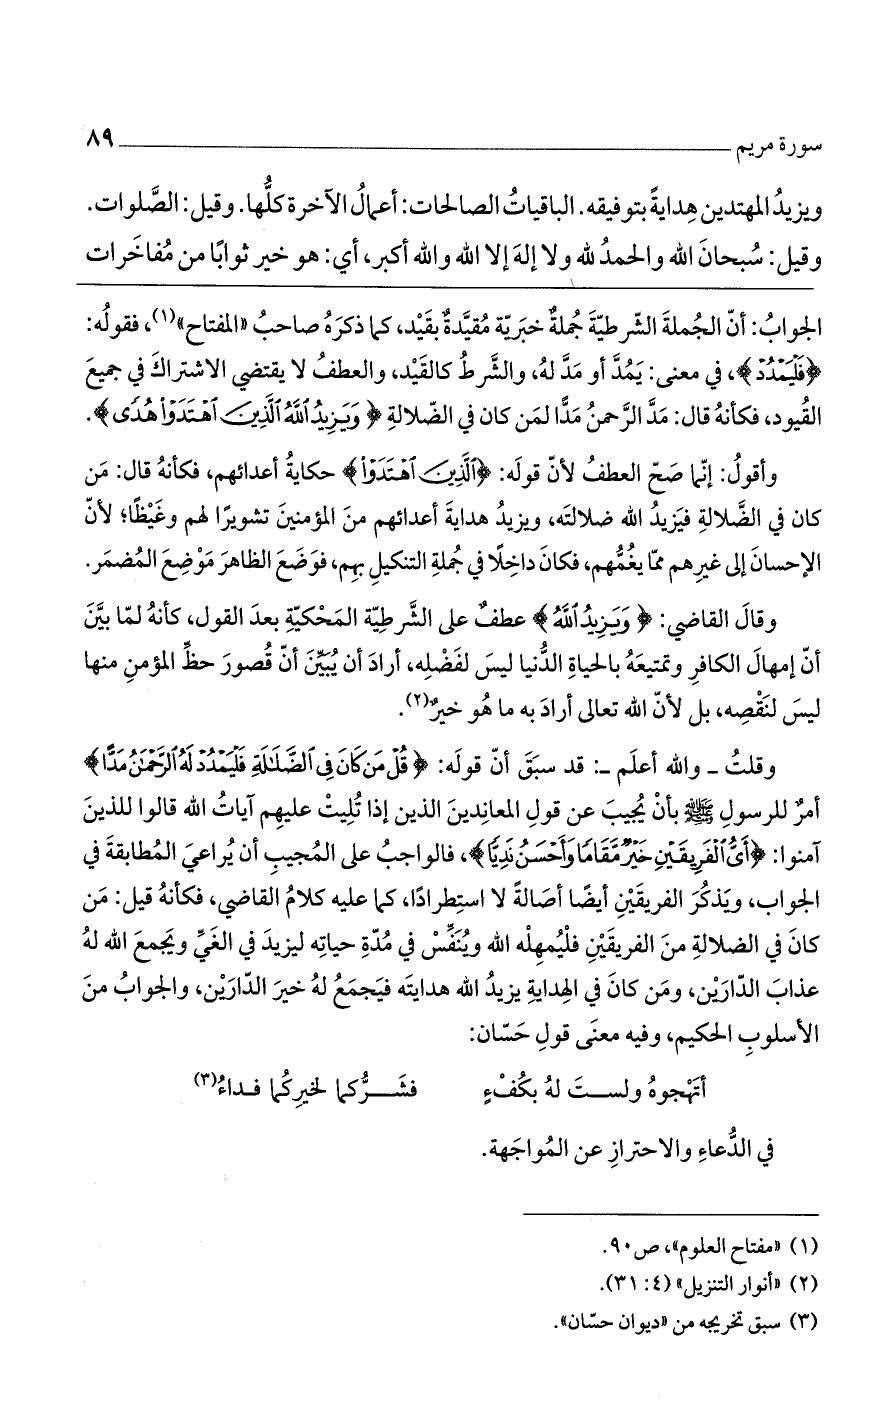 سورة مريم ٨٩
ويزيدُ المهتدين هِدايةً بتوفيقه. الباقياتُ الصالحات: أعمالُ الآخرة كلُّها. وقيل: الصَّلوات.
وقيل: سُبحانَ الله والحمدُ لله ولا إلهَ إلا الله والله أكبر، أي: هو خير ثوابًا من مُفاخَرات
الجوابُ: أنّ الجُملةَ الشّرطيّةَ جُملةٌ خبَريّة مُقيَّدةٌ بقَيْد، كما ذكرَهُ صاحبُ «المفتاح»(١)، فقولُه:
﴿فَلْيَمْدُدْ﴾، في معنى: يَمُدَّ أو مَدَّ لهُ، والشَّرطُ كالقَيْد، والعطفُ لا يقتضي الاشتراكَ في جميعَ
القُيود، فكأنهُ قال: مَدَّ الرَّحمنُ مَدًّا لمَن كان في الضّلالةِ ﴿وَيَزِيدُ ٱللَّهُ ٱلَّذِينَ ٱهْتَدَوْا۟ هُدًى﴾.
وأقولُ: إنّما صَحّ العطفُ لأنّ قولَه: ﴿ٱلَّذِينَ ٱهْتَدَوْا۟﴾ حكايةُ أعدائهم، فكأنهُ قال: مَن
كان في الضَّلالةِ فيَزيدُ الله ضلالتَه، ويزيدُ هدايةَ أعدائهم منَ المؤمنينَ تشويرًا لهم وغَيْظًا؛ لأنّ
الإحسانَ إلى غيرِهم ممّا يغُمُّهم، فكانَ داخِلًا في جُملةِ التنكيلِ بهِم، فوَضَعَ الظاهرَ مَوْضِعَ المُضمَر.
وقالَ القاضي: ﴿وَيَزِيدُ ٱللَّهُ﴾ عطفٌ على الشَّرطِيّة المَحْكيّةِ بعدَ القول، كأنهُ لمّا بيَّنَ
أنّ إمهالَ الكافرِ وتمتيعَهُ بالحياةِ الدُّنيا ليسَ لفَضْلِه، أرادَ أن يُبيِّنَ أنّ قُصورَ حظِّ المؤمنِ منها
ليسَ لنَقْصِه، بل لأنّ الله تعالى أرادَ به ما هُو خيرٌ(٢).
وقلتُ ـ والله أعلَم ـ: قد سبَقَ أنّ قولَه: ﴿قُلْ مَن كَانَ فِى ٱلضَّلَـٰلَةِ فَلْيَمْدُدْ لَهُ ٱلرَّحْمَـٰنُ مَدًّا﴾
أمرٌ للرسولِ ﷺ بأنْ يُجيبَ عن قولِ المعانِدينَ الذين إذا تُلِيتْ عليهِم آياتُ الله قالوا للذينَ
آمنوا: ﴿أَىُّ ٱلْفَرِيقَيْنِ خَيْرٌ مَّقَامًا وَأَحْسَنُ نَدِيًّا﴾، فالواجبُ على المُجيبِ أن يُراعيَ المُطابقةَ في
الجواب، ويَذكُرَ الفريقَيْنِ أيضًا أصَالةً لا استِطرادًا، كما عليه كلامُ القاضي، فكأنهُ قيل: مَن
كانَ في الضلالةِ منَ الفريقَيْنِ فلْيُمهِلْه الله ويُنَفِّسْ في مُدّةِ حياتِه ليزيدَ في الغَيِّ ويَجمعَ الله لهُ
عذابَ الدّارَيْن، ومَن كانَ في الهِدايةِ يزيدُ الله هدايتَه فيَجمَعُ لهُ خيرَ الدّارَيْن، والجوابُ منَ
الأسلوبِ الحكيم، وفيه معنَى قولِ حَسّان:
أتَهْجوهُ ولستَ لهُ بكُفْءٍ فشَرُّكما لخيرِكُما فداءُ(٣)
في الدُّعاءِ والاحترازِ عن المُواجَهة.
(١) «مفتاح العلوم»، ص٩٠.
(٢) «أنوار التنزيل» (٤: ٣١).
(٣) سبق تخريجه من «ديوان حسّان».